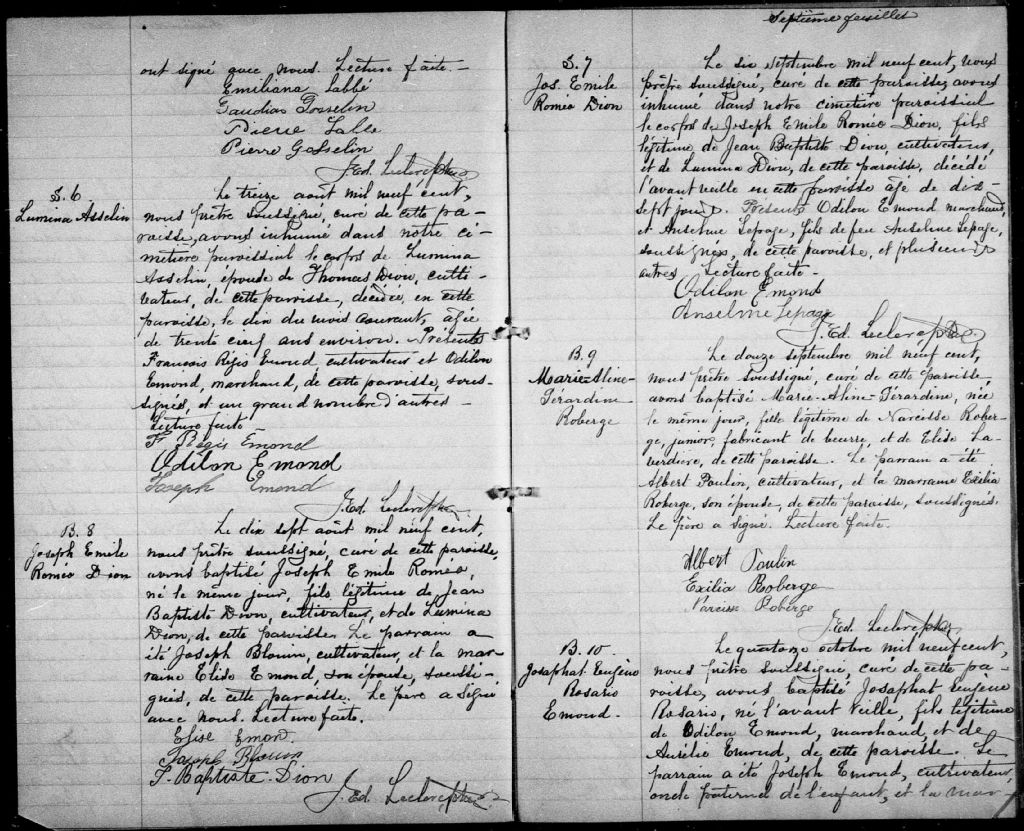 ont signé avec nous. Lecture faite.-
Emiliana Labbé
Gaudias Gosselin
Pierre Labbe
Pierre Gosselin
J. Ed. Leclerc ptre
S. 6
Lumina Asselin
Le treize août mil neuf cent,
nous prêtre soussigné, curé de cette pa-
roisse, avons inhumé dans notre ci-
metière paroissial le corps de Lumina
Asselin, épouse de Thomas Dion, culti-
vateur, de cette paroisse, décédée, en cette
paroisse, le dix du mois courant, âgée
de trente cinq ans environ. Présents
François Régis Emond cultivateur et Odilon
Emond, marchand, de cette paroisse, sous-
signés, et un grand nombre d'autres -
Lecture faite
F Régis Emond
Odilon Emond
Joseph Emond
J. Ed. Leclerc ptre
B. 8
Joseph Emile
Roméo Dion
Le dix sept août mil neuf cent,
nous prêtre soussigné, curé de cette paroisse,
avons baptisé Joseph Emile Roméo,
né le même jour, fils légitime de Jean
Baptiste Dion, cultivateur, et de Lumina
Dion, de cette paroisse. Le parrain a
été Joseph Blouin, cultivateur, et la mar-
raine Elise Emond, son épouse, soussi-
gnés, de cette paroisse. Le père a signé
avec nous. Lecture faite.
Elise Emond
Joseph Blouin
J. Baptiste Dion
J. Ed. Leclerc ptre
Septième feuillet
S. 7
Jos. Emile
Roméo Dion
Le six septembre mil neuf cent, nous
prêtre soussigné, curé de cette paroisse, avons
inhumé dans notre cimetière paroissial
le corps de Joseph Emile Roméo Dion, fils
légitime de Jean Baptiste Dion, cultivateur,
et de Lumina Dion, de cette paroisse, décédé
l'avant veille en cette paroisse âgé de dix-
sept jours. Présents Odilon Emond marchand,
et Anselme Lepage, fils de feu Anselme Lepage,
soussignés, de cette paroisse, et plusieurs
autres Lecture faite-
Odilon Emond
Anselme Lepage
J. Ed. Leclerc ptre
B. 9
Marie-Aline-
Gérardine
Roberge
Le douze septembre mil neuf cent,
nous prêtre soussigné, curé de cette paroisse
avons baptisé Marie-Aline-Gérardine, née
le même jour, fille légitime de Narcisse Rober-
ge, junior, fabricant de beurre, et de Elise La-
verdière, de cette paroisse. Le parrain a été
Albert Poulin, cultivateur, et la marraine Exilia
Roberge, son épouse, de cette paroisse, soussignés.
Le père a signé. Lecture faite.
Albert Poulin
Exilia Roberge
Narcisse Roberge
J. Ed. Leclerc ptre
B. 10
Josaphat Eugène
Rosario
Emond.
Le quatorze octobre mil neuf cent,
nous prêtre soussigné, curé de cette pa-
roisse, avons baptisé Josaphat Eugène
Rosario, né l'avant veille, fils légitime
de Odilon Emond, marchand, et de
Aurélie Emond, de cette paroisse. Le
parrain a été Joseph Emond, cultivateur,
oncle paternel de l'enfant, et la mar-